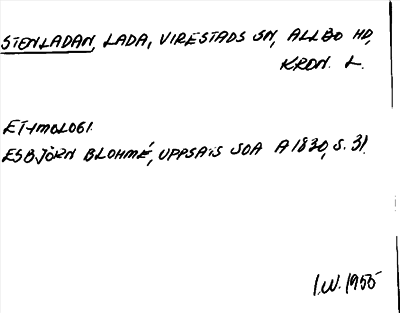 STENLADAN, LADA, VIRESTADS SN, ALLBO HD,
KRON. L.
ETYMOLOGI.
ESBJÖRN BLOHMÉ, UPPSATS SOA A 1830, S. 31.
I.W. 1955